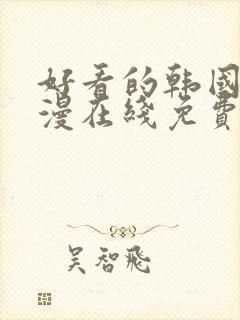 好看的韩国
漫在綫免費
吴智飛